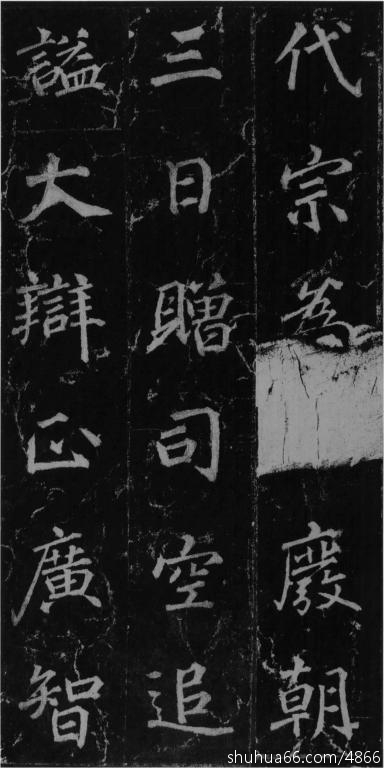 代宗為廢朝
三日贈司空追
謚大辯正廣智
shuhua66.com/4866